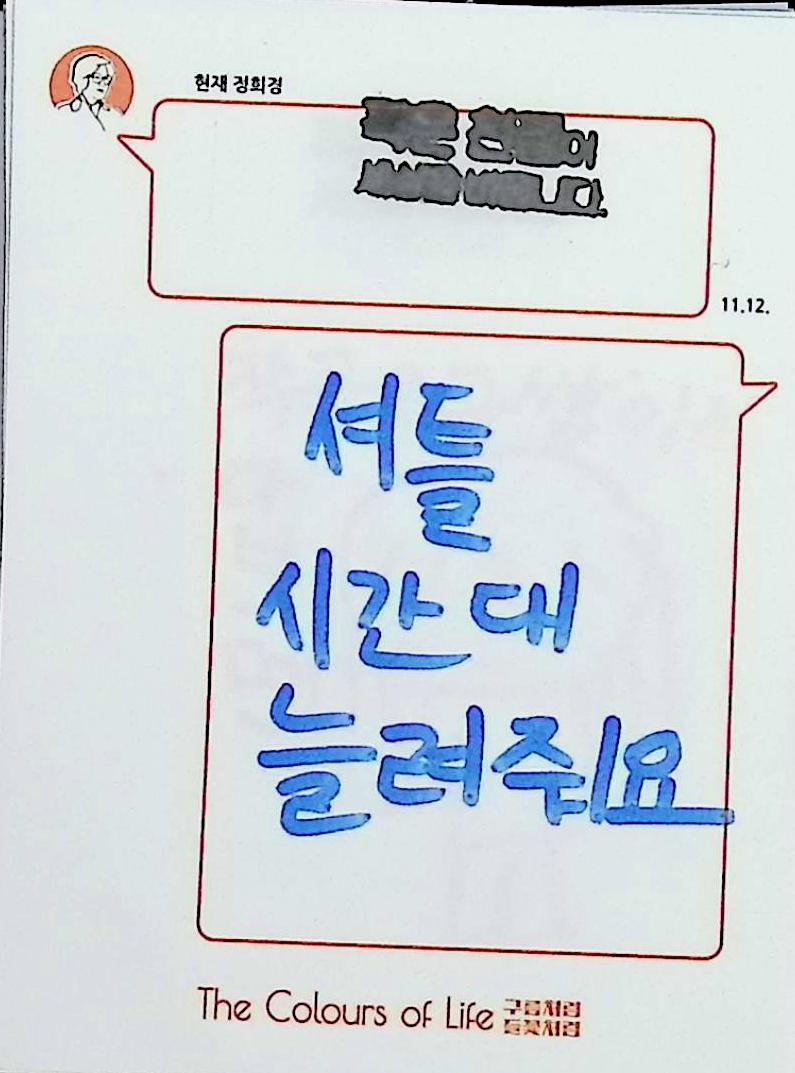 현재 정희경
11.12.
셔틀
시간대
늘려줘요
The Colours of Life 구름처럼
들꽃처럼